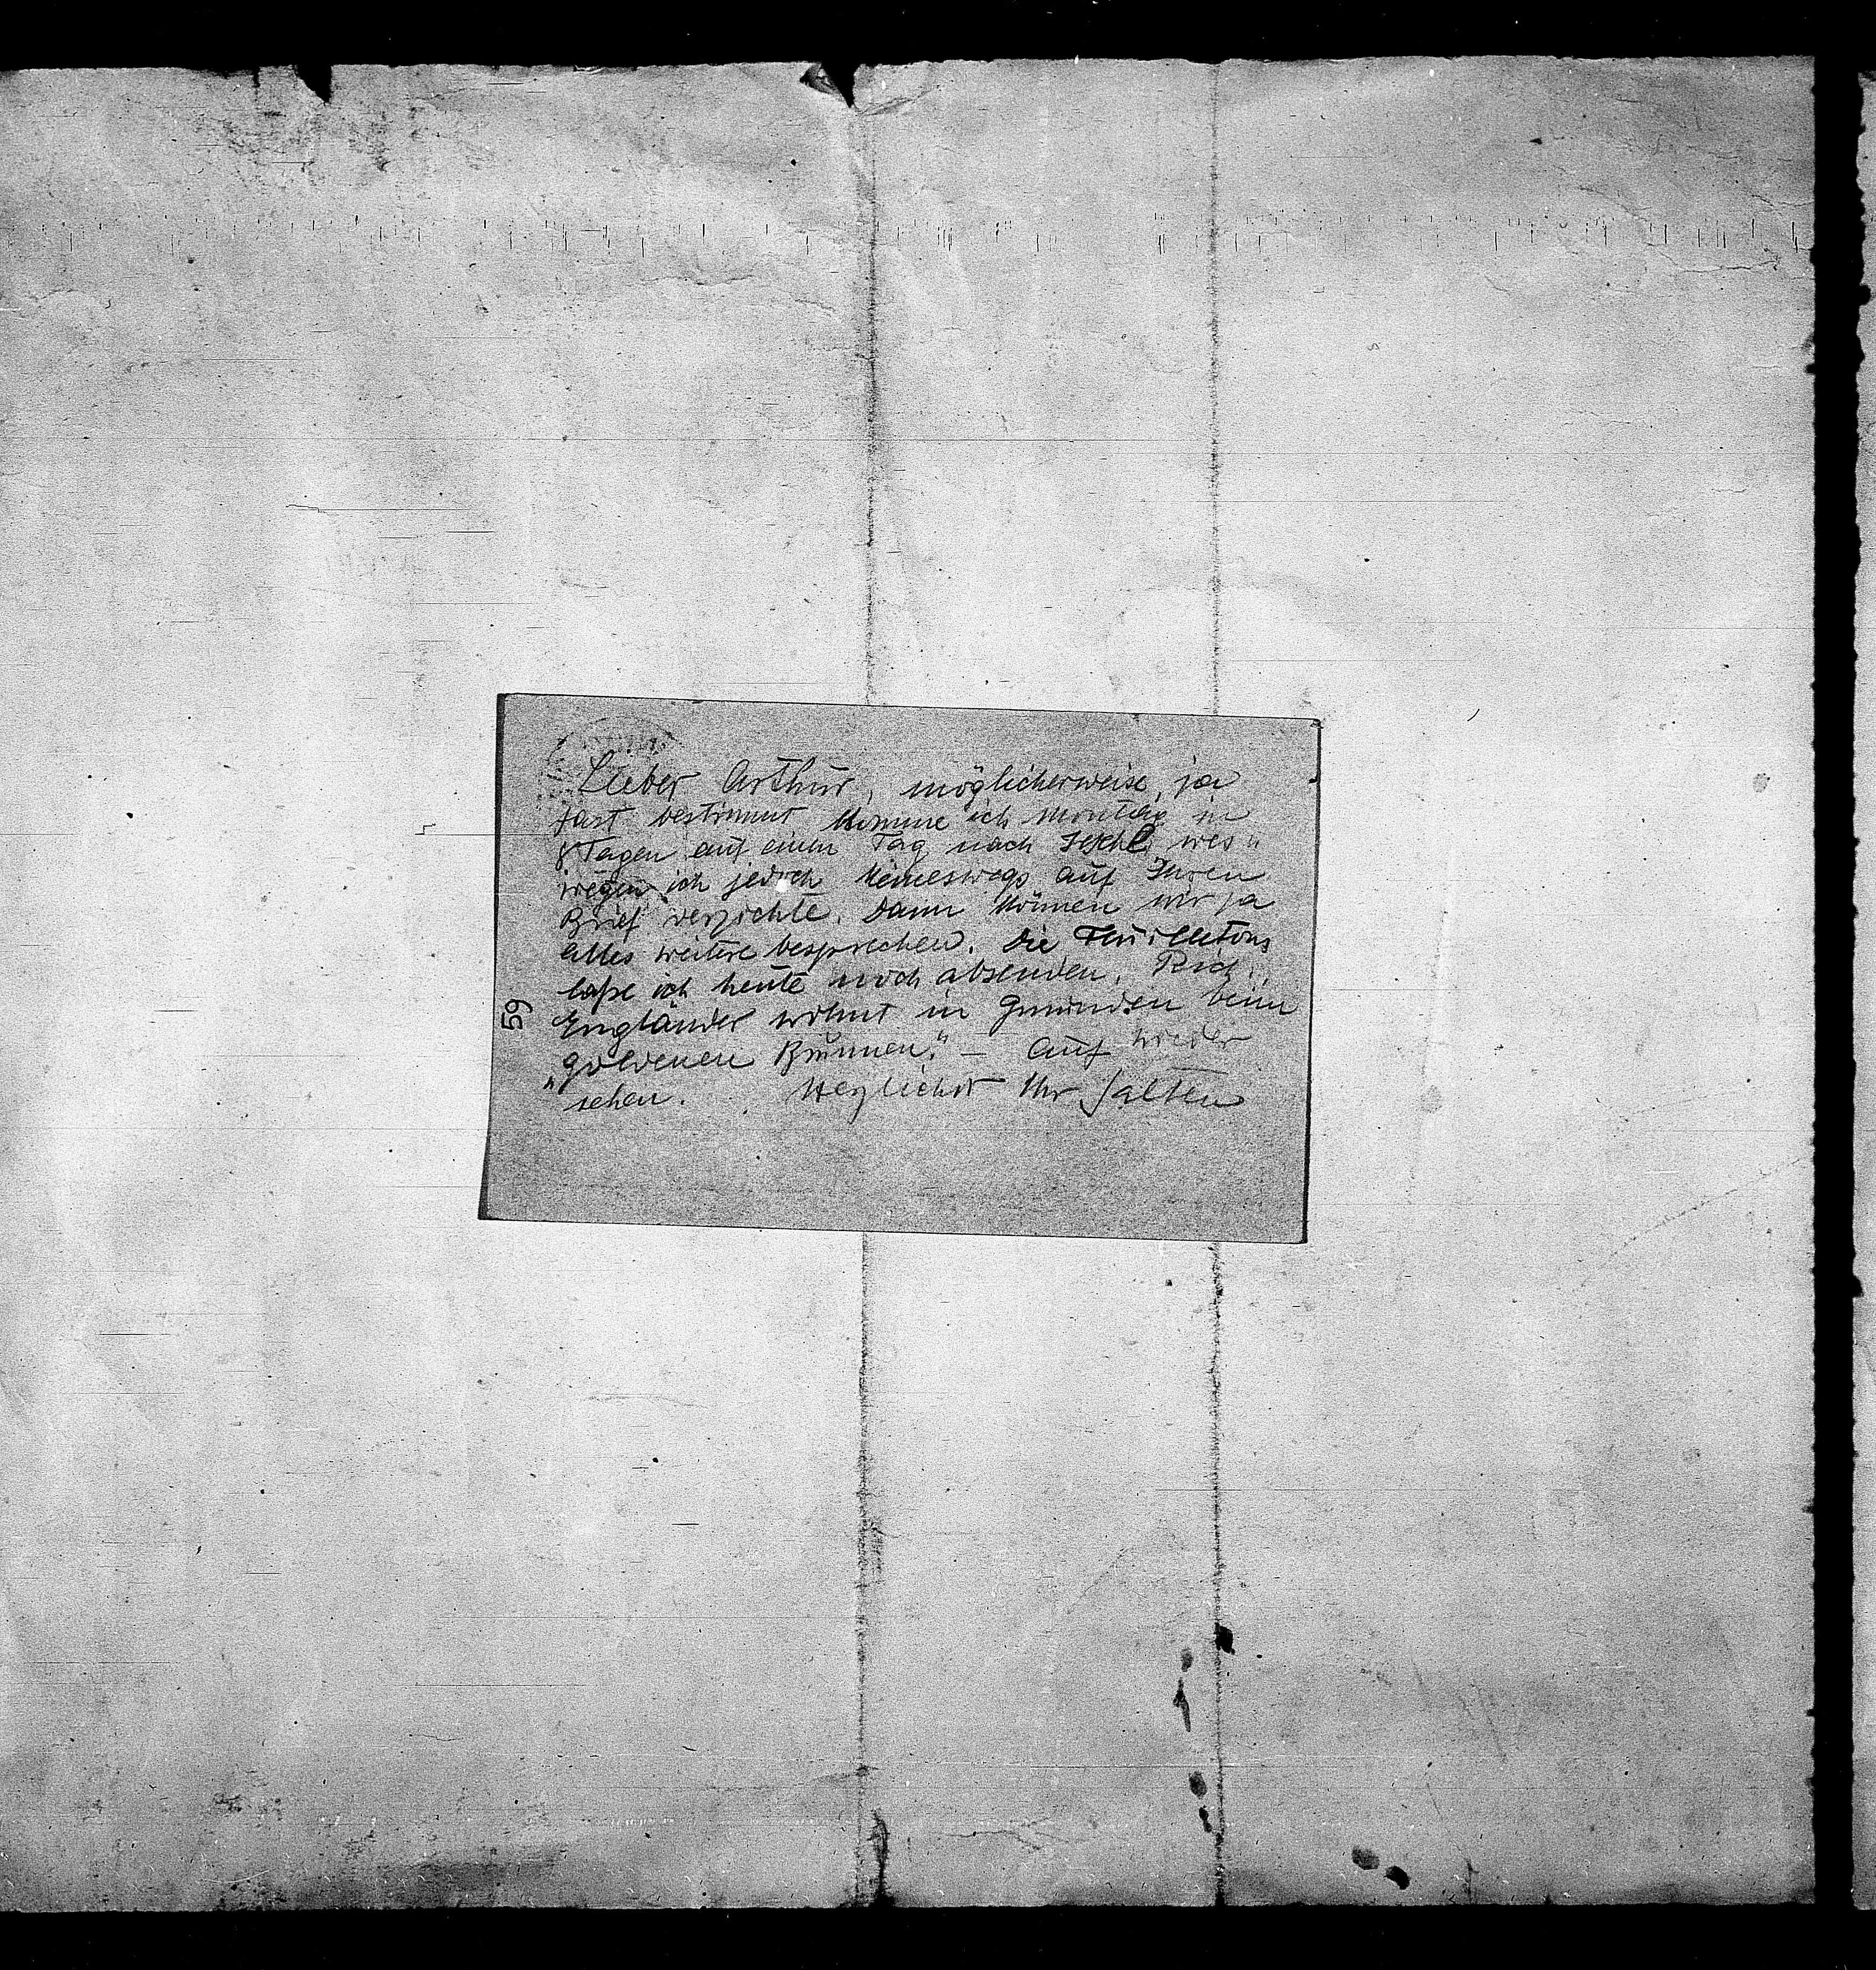 Lieber Arthur, möglicherweise, ja
fast bestimmt komme ich Montag in
8 Tagen auf einen Tag nach Ischl, wes=
wegen ich jedoch keineswegs auf Ihren
Brief verzichte. Dann können wir ja
alles weitere besprechen. Die Feuilletons
laße ich heute noch absenden. Rich.
Engländer wohnt in Gmunden beim
„goldenen Brunnen." – Auf wieder
sehen. Herzlichst Ihr Salten
59